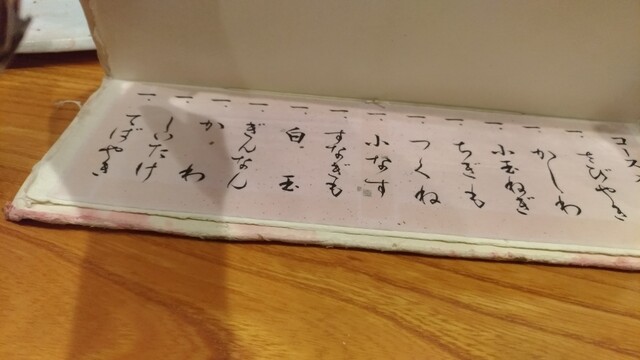 コース
一. さびやき
一. かしわ
一. 小玉ねぎ
一. ちぎも
一. つくね
一. 小なす
一. すなぎも
一. 白玉
一. ぎんなん
一. かわ
一. しいたけ
一. てばやき